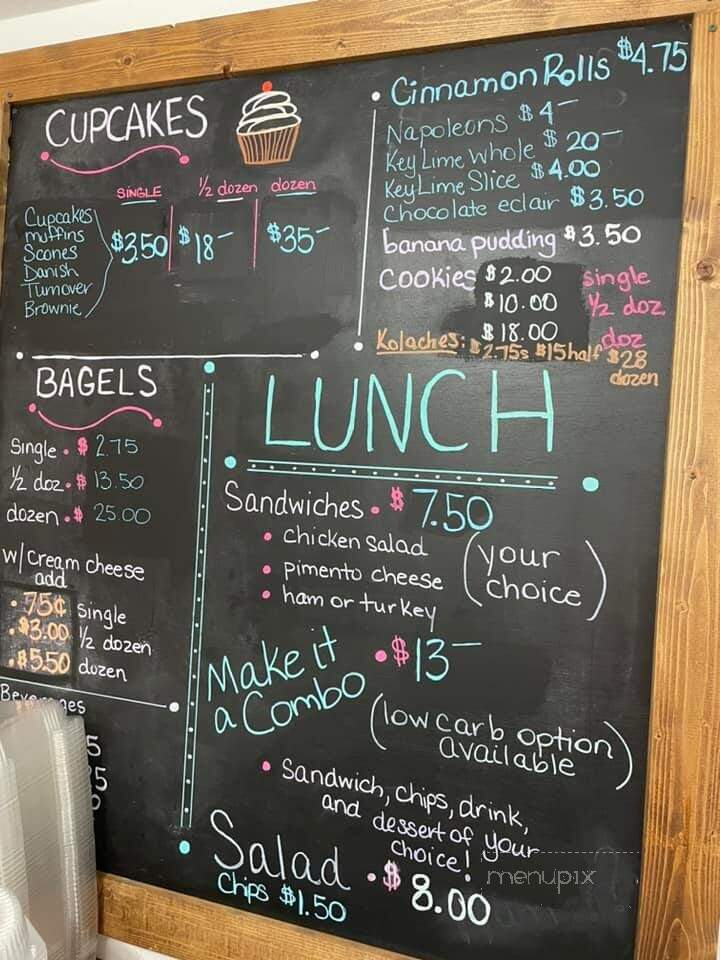 CUPCAKES
SINGLE 1/2 dozen dozen
Cupcakes
muffins
Scones
Danish
Turnover
Brownie
$3.50 $18- $35-
Cinnamon Rolls $4.75
Napoleons $4-
Key Lime whole $20-
Key Lime Slice $4.00
Chocolate eclair $3.50
banana pudding $3.50
Cookies $2.00 single
$10.00 1/2 doz.
$18.00 doz
Kolaches: $2.75s $15half $28
dozen
BAGELS
Single • $2.75
1/2 doz • $13.50
dozen • $25.00
w/cream cheese
add
• 75¢ single
• $3.00 1/2 dozen
• $5.50 dozen
Beverages
5
5
LUNCH
Sandwiches • $7.50
• chicken salad
• pimento cheese
• ham or turkey
(your
choice)
Make it
a Combo • $13-
(low carb option
available)
• Sandwich, chips, drink,
and dessert of your
choice!
Salad • $8.00
Chips $1.50
menupix